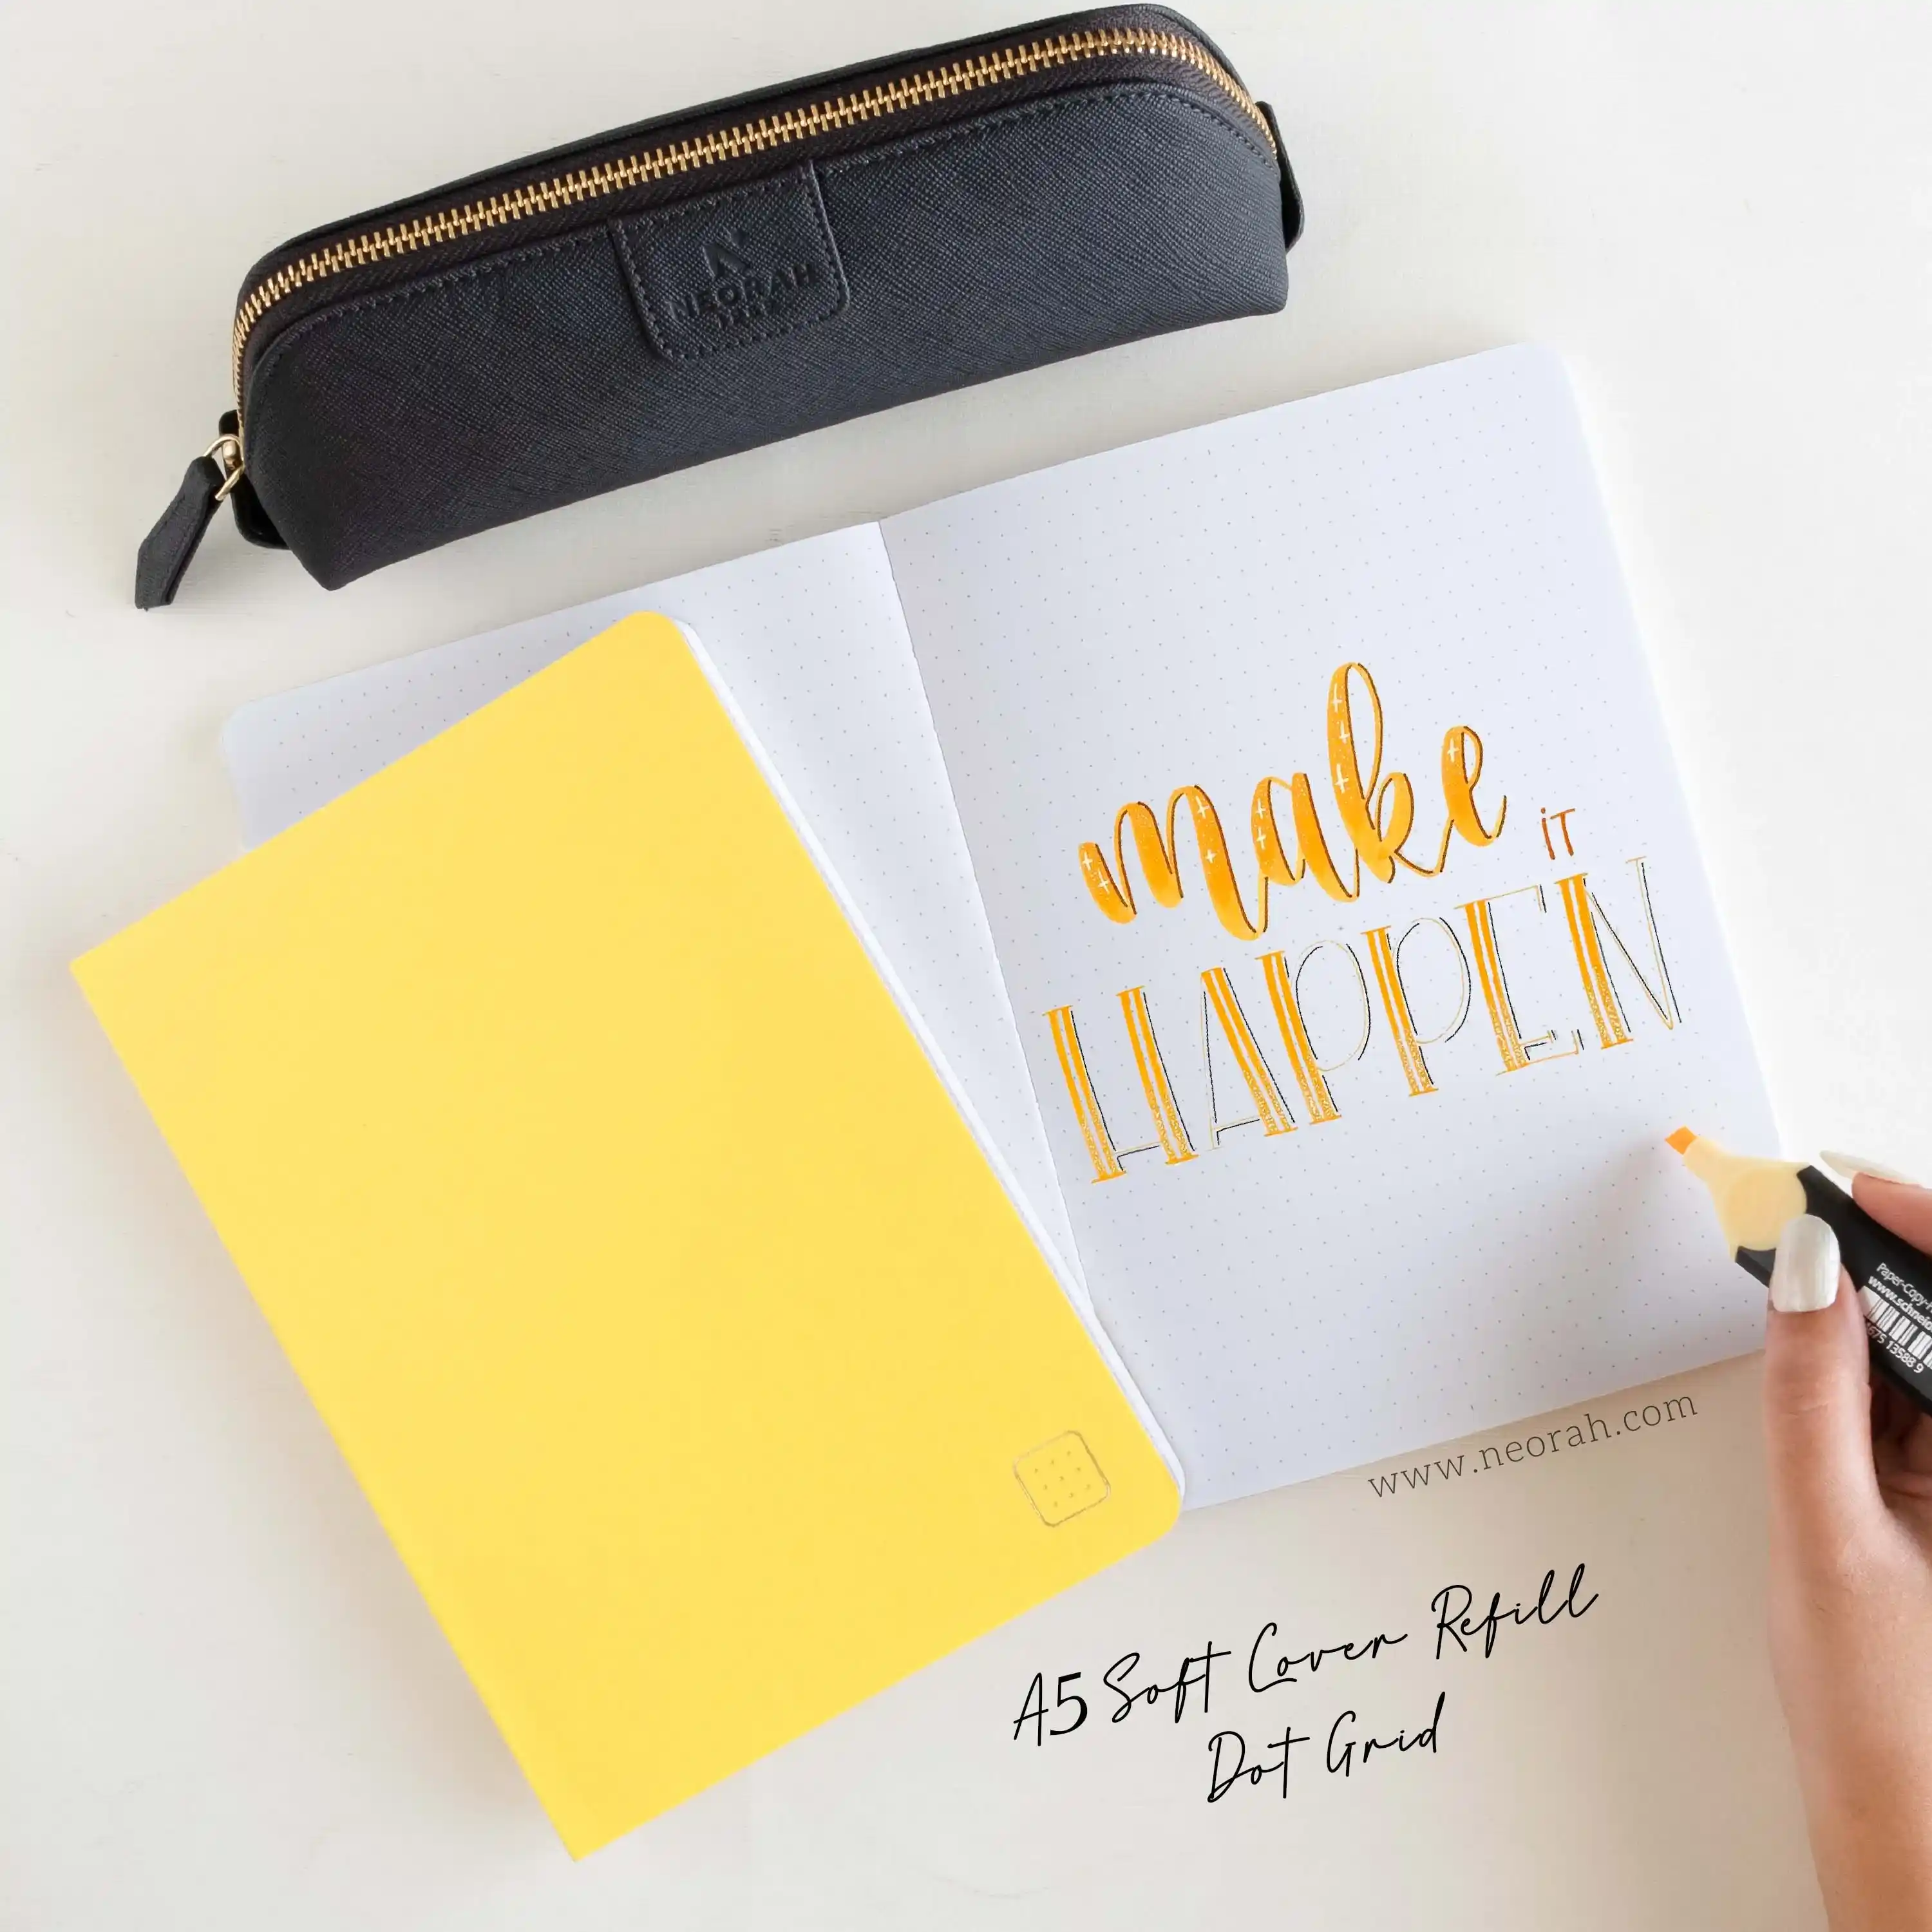 NEORAH
make
iT
HAPPEN
Paper-Copy-
www.schneid
675 13588 9
www.neorah.com
A5 Soft Cover Refill
Dot Grid